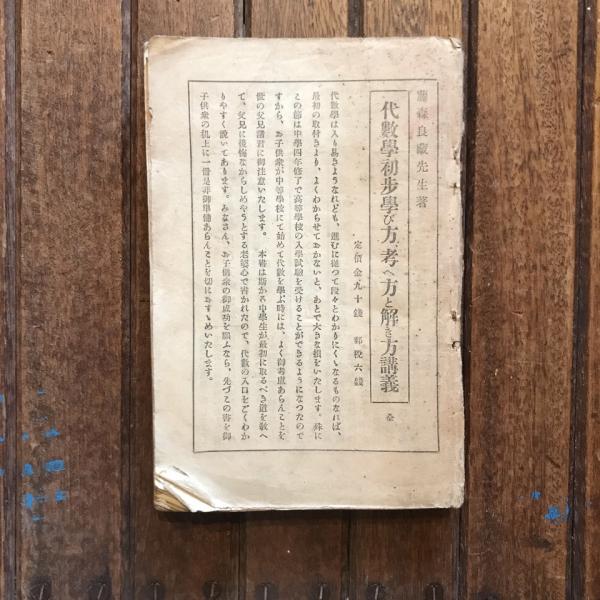 藤森良藏先生著
代數學初步學び方考へ方と解き方講義 全
定價金九十錢 郵稅六錢
代數學は入り易きようなれども、進むに從つて段々とわかりにくゝなるものなれば、
最初の取付きより、よくわからせておかないと、あとで大きな損をいたします。殊に
この節は中學四年修了で高等學校の入學試驗を受けることができるようになつたので
すから、お子供衆が中等學校にて始めて代數を學ぶ時には、よく御考慮あらんことを
世の父兄諸君に御注意いたします。 本書は斯かる中學生が最初に取るべき道を敎へ
て、父兄に後悔なからしめやうとする老婆心で書かれたので、代數の入口をごくわか
りやすく說いてあります。みなさん、お子供衆の御成功を願ふなら、先づこの書を御
子供衆の机上に一冊是非御準備あらんことを切におすゝめいたします。